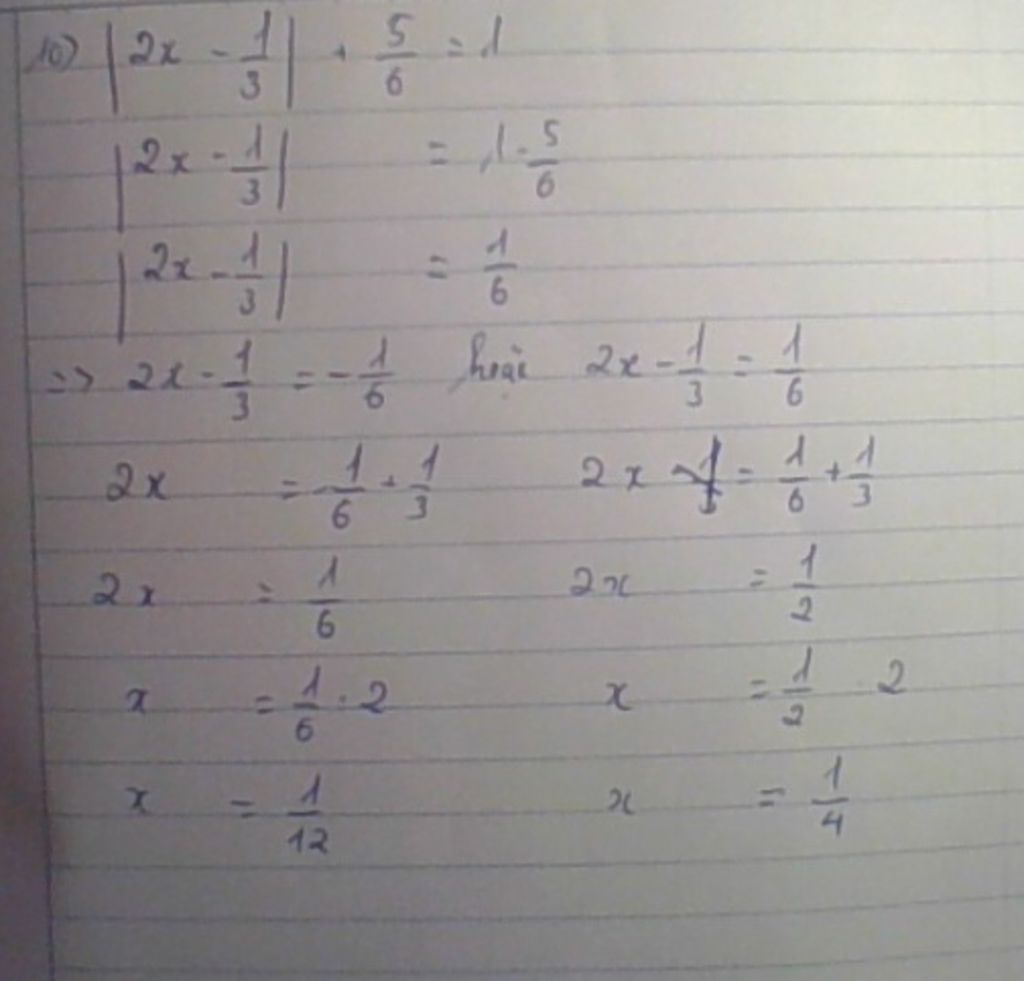 10) |2x - 1/3| + 5/6 = 1
|2x - 1/3| = 1 - 5/6
|2x - 1/3| = 1/6
=> 2x - 1/3 = - 1/6 hoặc 2x - 1/3 = 1/6
2x = - 1/6 + 1/3 2x = 1/6 + 1/3
2x = 1/6 2x = 1/2
x = 1/6 . 2 x = 1/2 . 2
x = 1/12 x = 1/4